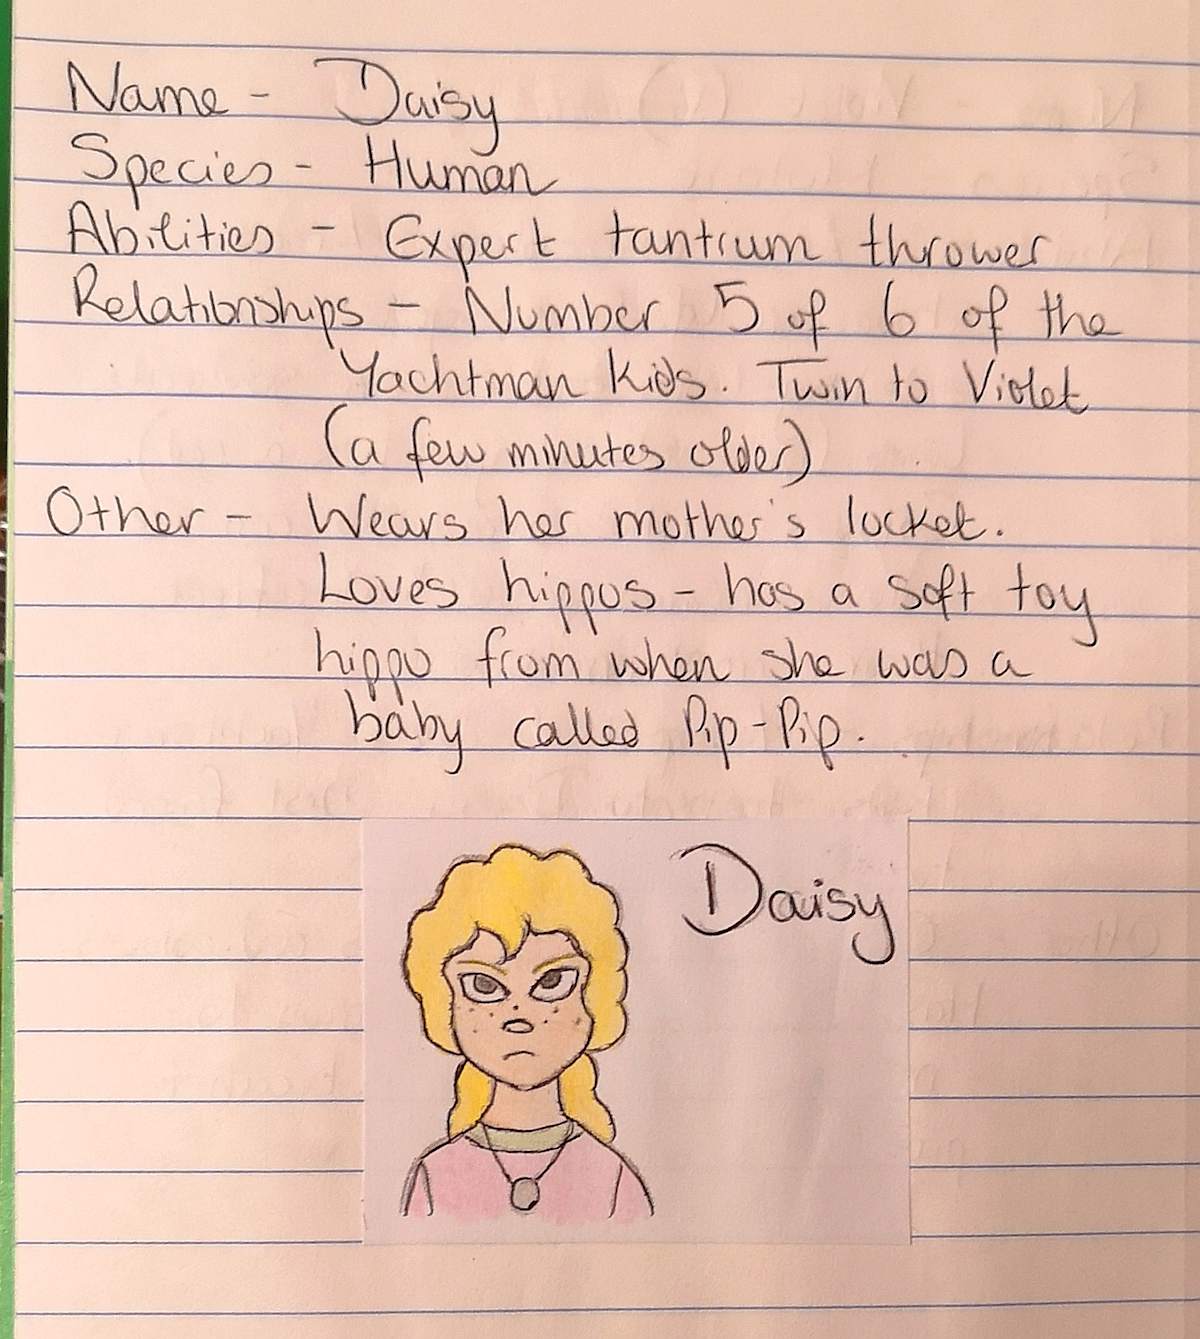 Name - Daisy
Species - Human
Abilities - Expert tantrum thrower
Relationships - Number 5 of 6 of the
Yachtman kids. Twin to Violet
(a few minutes older)
Other - Wears her mother's locket.
Loves hippos - has a soft toy
hippo from when she was a
baby called Pip-Pip.
Daisy